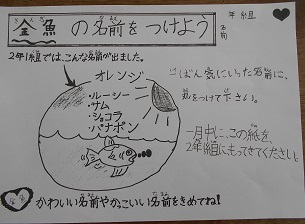 金魚 の名前をつけよう
きんぎょ
年 組
名前
2年1組では、こんな名前が出ました。
オレンジ
・ルーシー
・サム
・ショコラ
・バナポン
いちばん気にいった名前に、
丸をつけて下さい。
一月中に、この紙を
2年1組にもってきてください。
かわいい名前やかっこいい名前をきめてね!